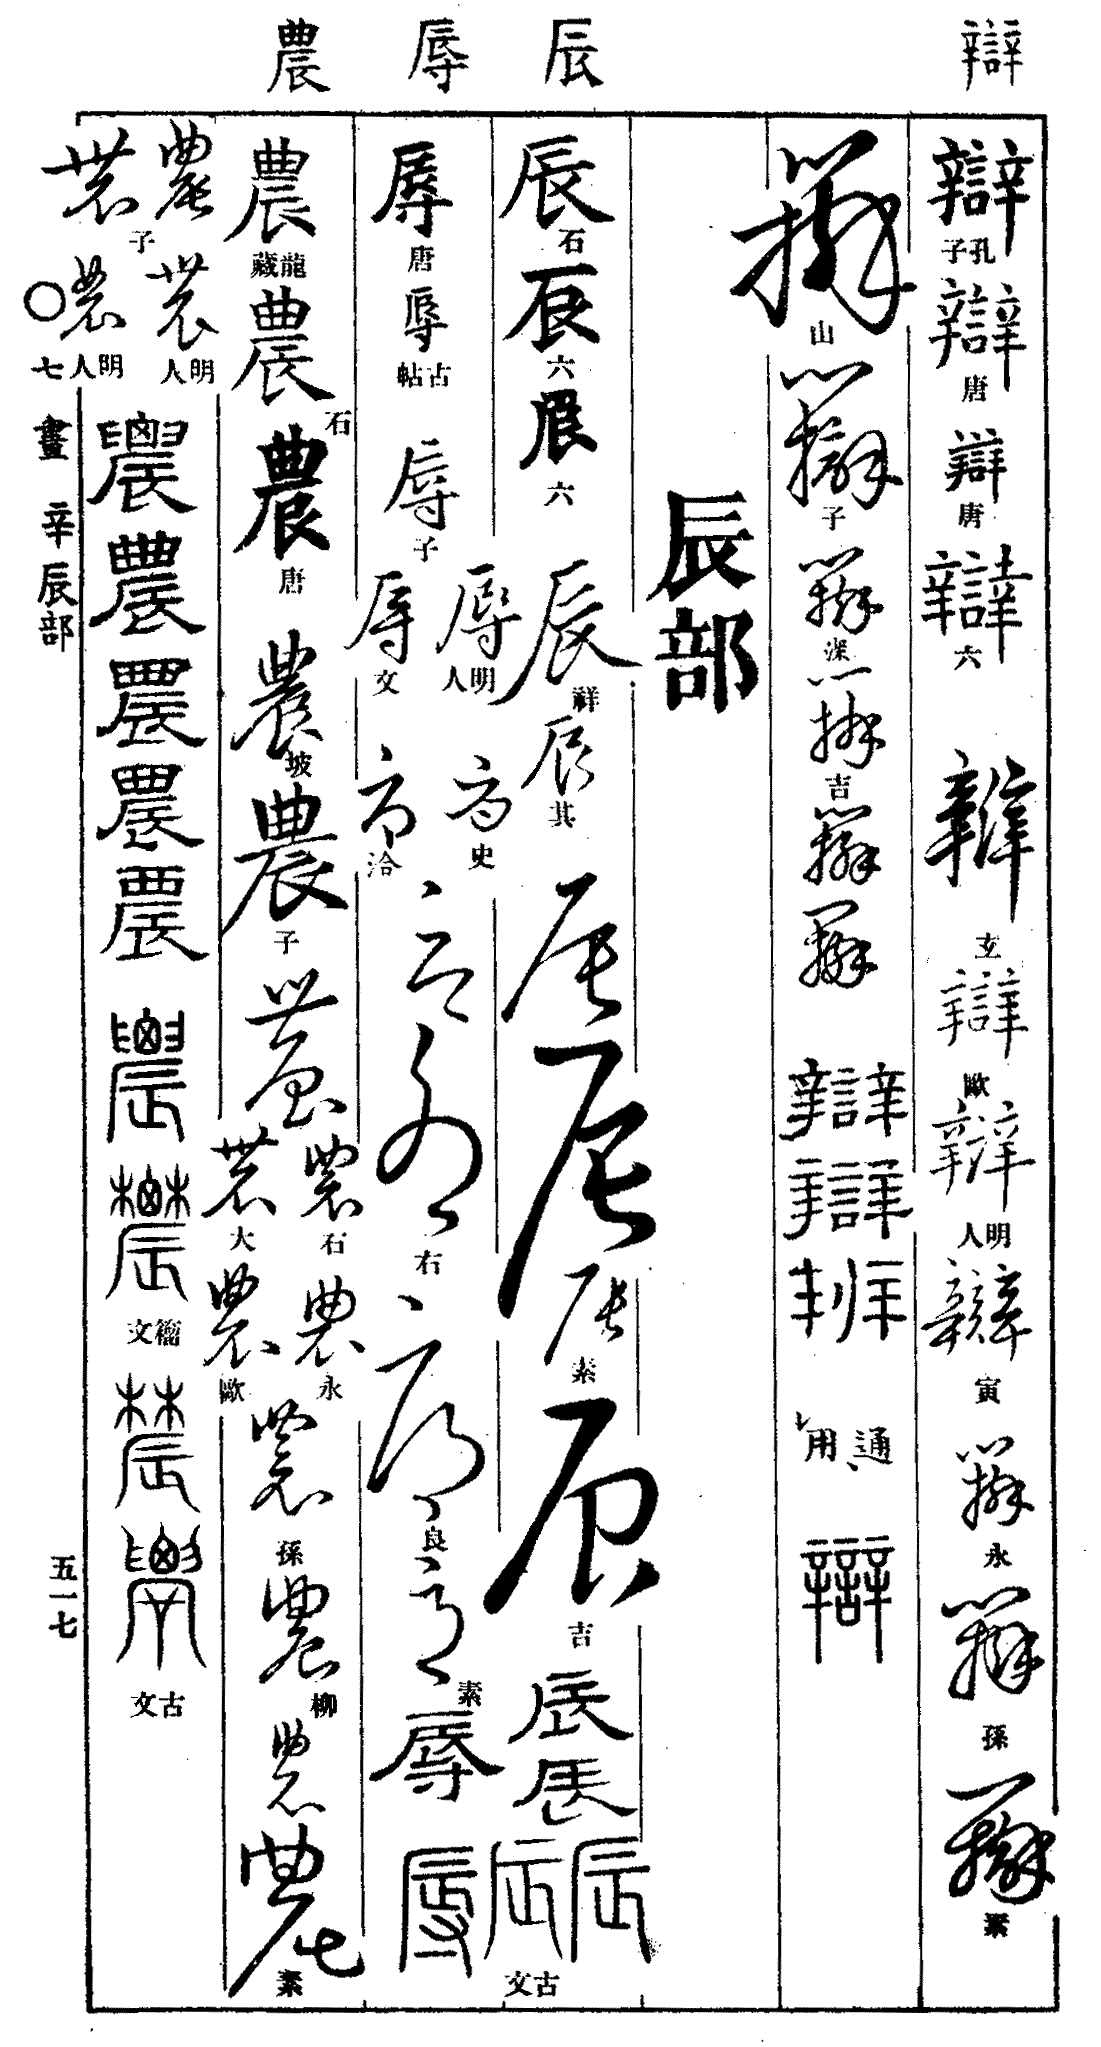 辯
辰
辱
農
辯
孔子
辯
唐
辯
唐
辯
六
辯
玄
辯
歐
辯
明人
辯
寅
辯
永
辯
孫
辯
素
辯
山
辯
子
辯
深
辯
吉
辯
辯
辯
辯
辯
通用
辯
辰部
辰
石
辰
六
辰
六
辰
祥
辰
其
辰
辰
辰
素
辰
吉
辰
辰
辰
辰
古文
辱
唐
辱
古帖
辱
子
辱
明人
辱
文
辱
史
辱
洽
辱
辱
右
辱
良
辱
素
辱
辱
農
龍藏
農
石
農
唐
農
坡
農
子
農
農
石
農
大
農
永
農
歐
農
孫
農
柳
農
農
素
農
農
子
農
明人
農
明人
農
農
農
農
農
農
農
籀文
農
農
古文
〇七畫 辛辰部
五一七